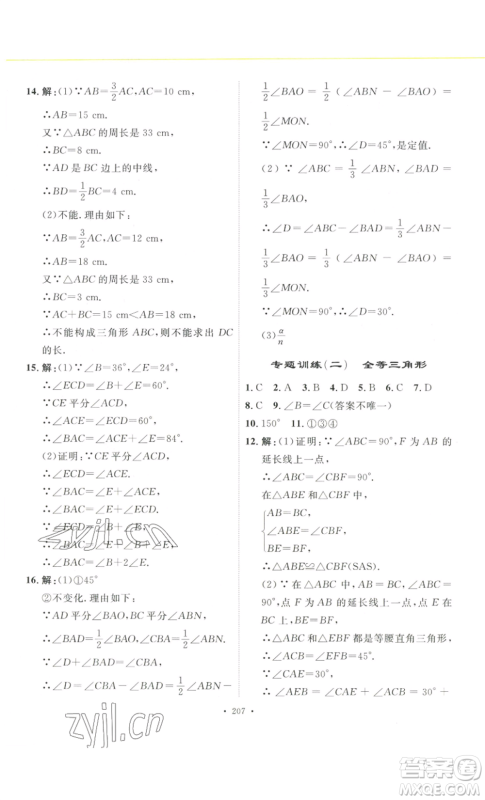 14. 解:(1)∵AB=3/2AC,AC=10 cm,
∴AB=15 cm.
又∵△ABC的周长是 33 cm,
∴BC=8 cm.
∵AD是BC边上的中线,
∴BD=1/2BC=4 cm;
(2)不能.理由如下:
∵AB=3/2AC,AB=18 cm,
∴AC=12 cm.
又∵△ABC的周长是 33 cm,
∴BC=3 cm.
∵AC+BC=15 cm<AB=18 cm,
∴不能构成三角形ABC,则不能求出DC
的长.
15. 解:(1)∵∠B=36°,∠E=24°,
∴∠ECD=∠B+∠E=60°.
∵CE平分∠ACD,
∴∠ACE=∠ECD=60°,
∴∠BAC=∠E+∠ACE=84°;
(2)证明:∵CE平分∠ACD,
∴∠ECD=∠ACE.
∵∠BAC=∠E+∠ACE,
∴∠BAC=∠E+∠ECD.
∵∠ECD=∠B+∠E,
∴∠BAC=∠E+∠B+∠E,
∴∠BAC=2∠E+∠B.
16. 解:(1)①45°
②不变化.理由如下:
∵AD平分∠BAO,BC平分∠ABN,
∴∠BAD=1/2∠BAO,∠ABC=1/2∠ABN.
∵∠D+∠BAD=∠ABC=1/2∠ABN,
∴∠D=∠ABC-∠BAD=1/2∠ABN-
1/2∠BAO=1/2(∠ABN-∠BAO)=
1/2∠MON.
∵∠MON=90°,∴∠D=45°,是定值.
(2)∵∠ABC=1/3∠ABN,∠BAD=
1/3∠BAO,
∴∠D=∠ABC-∠BAD=1/3∠ABN-
1/3∠BAO=1/3(∠ABN-∠BAO)=
1/3∠MON.
∵∠MON=90°,∴∠D=30°.
(3)α/n
专题训练(二) 全等三角形
1. C 2. A 3. B 4. D 5. A 6. C 7. D
8. C 9. ∠B=∠C(答案不唯一)
10. 150° 11. ①③④
12. 解:(1)证明:∵∠ABC=90°,F为AB的
延长线上一点,
∴∠ABC=∠CBF=90°.
在△ABE和△CBF中,
AB=BC,
∠ABE=∠CBF,
BE=BF,
∴△ABE≌△CBF(SAS).
(2)∵∠ABC=90°,AB=BC,E在
BC上,
∴△ABC是等腰直角三角形,
∴∠CAB=∠ACB=45°.
又∵∠CAE=30°,
∴∠BAE=15°.
∵△ABE≌△CBF,
∴∠BAE=∠BCF=15°.
又∵∠CAE+∠ACE=30°+
· 207 ·
zyjl.cn
zyjl.cn
答案圈
MXQE.COM